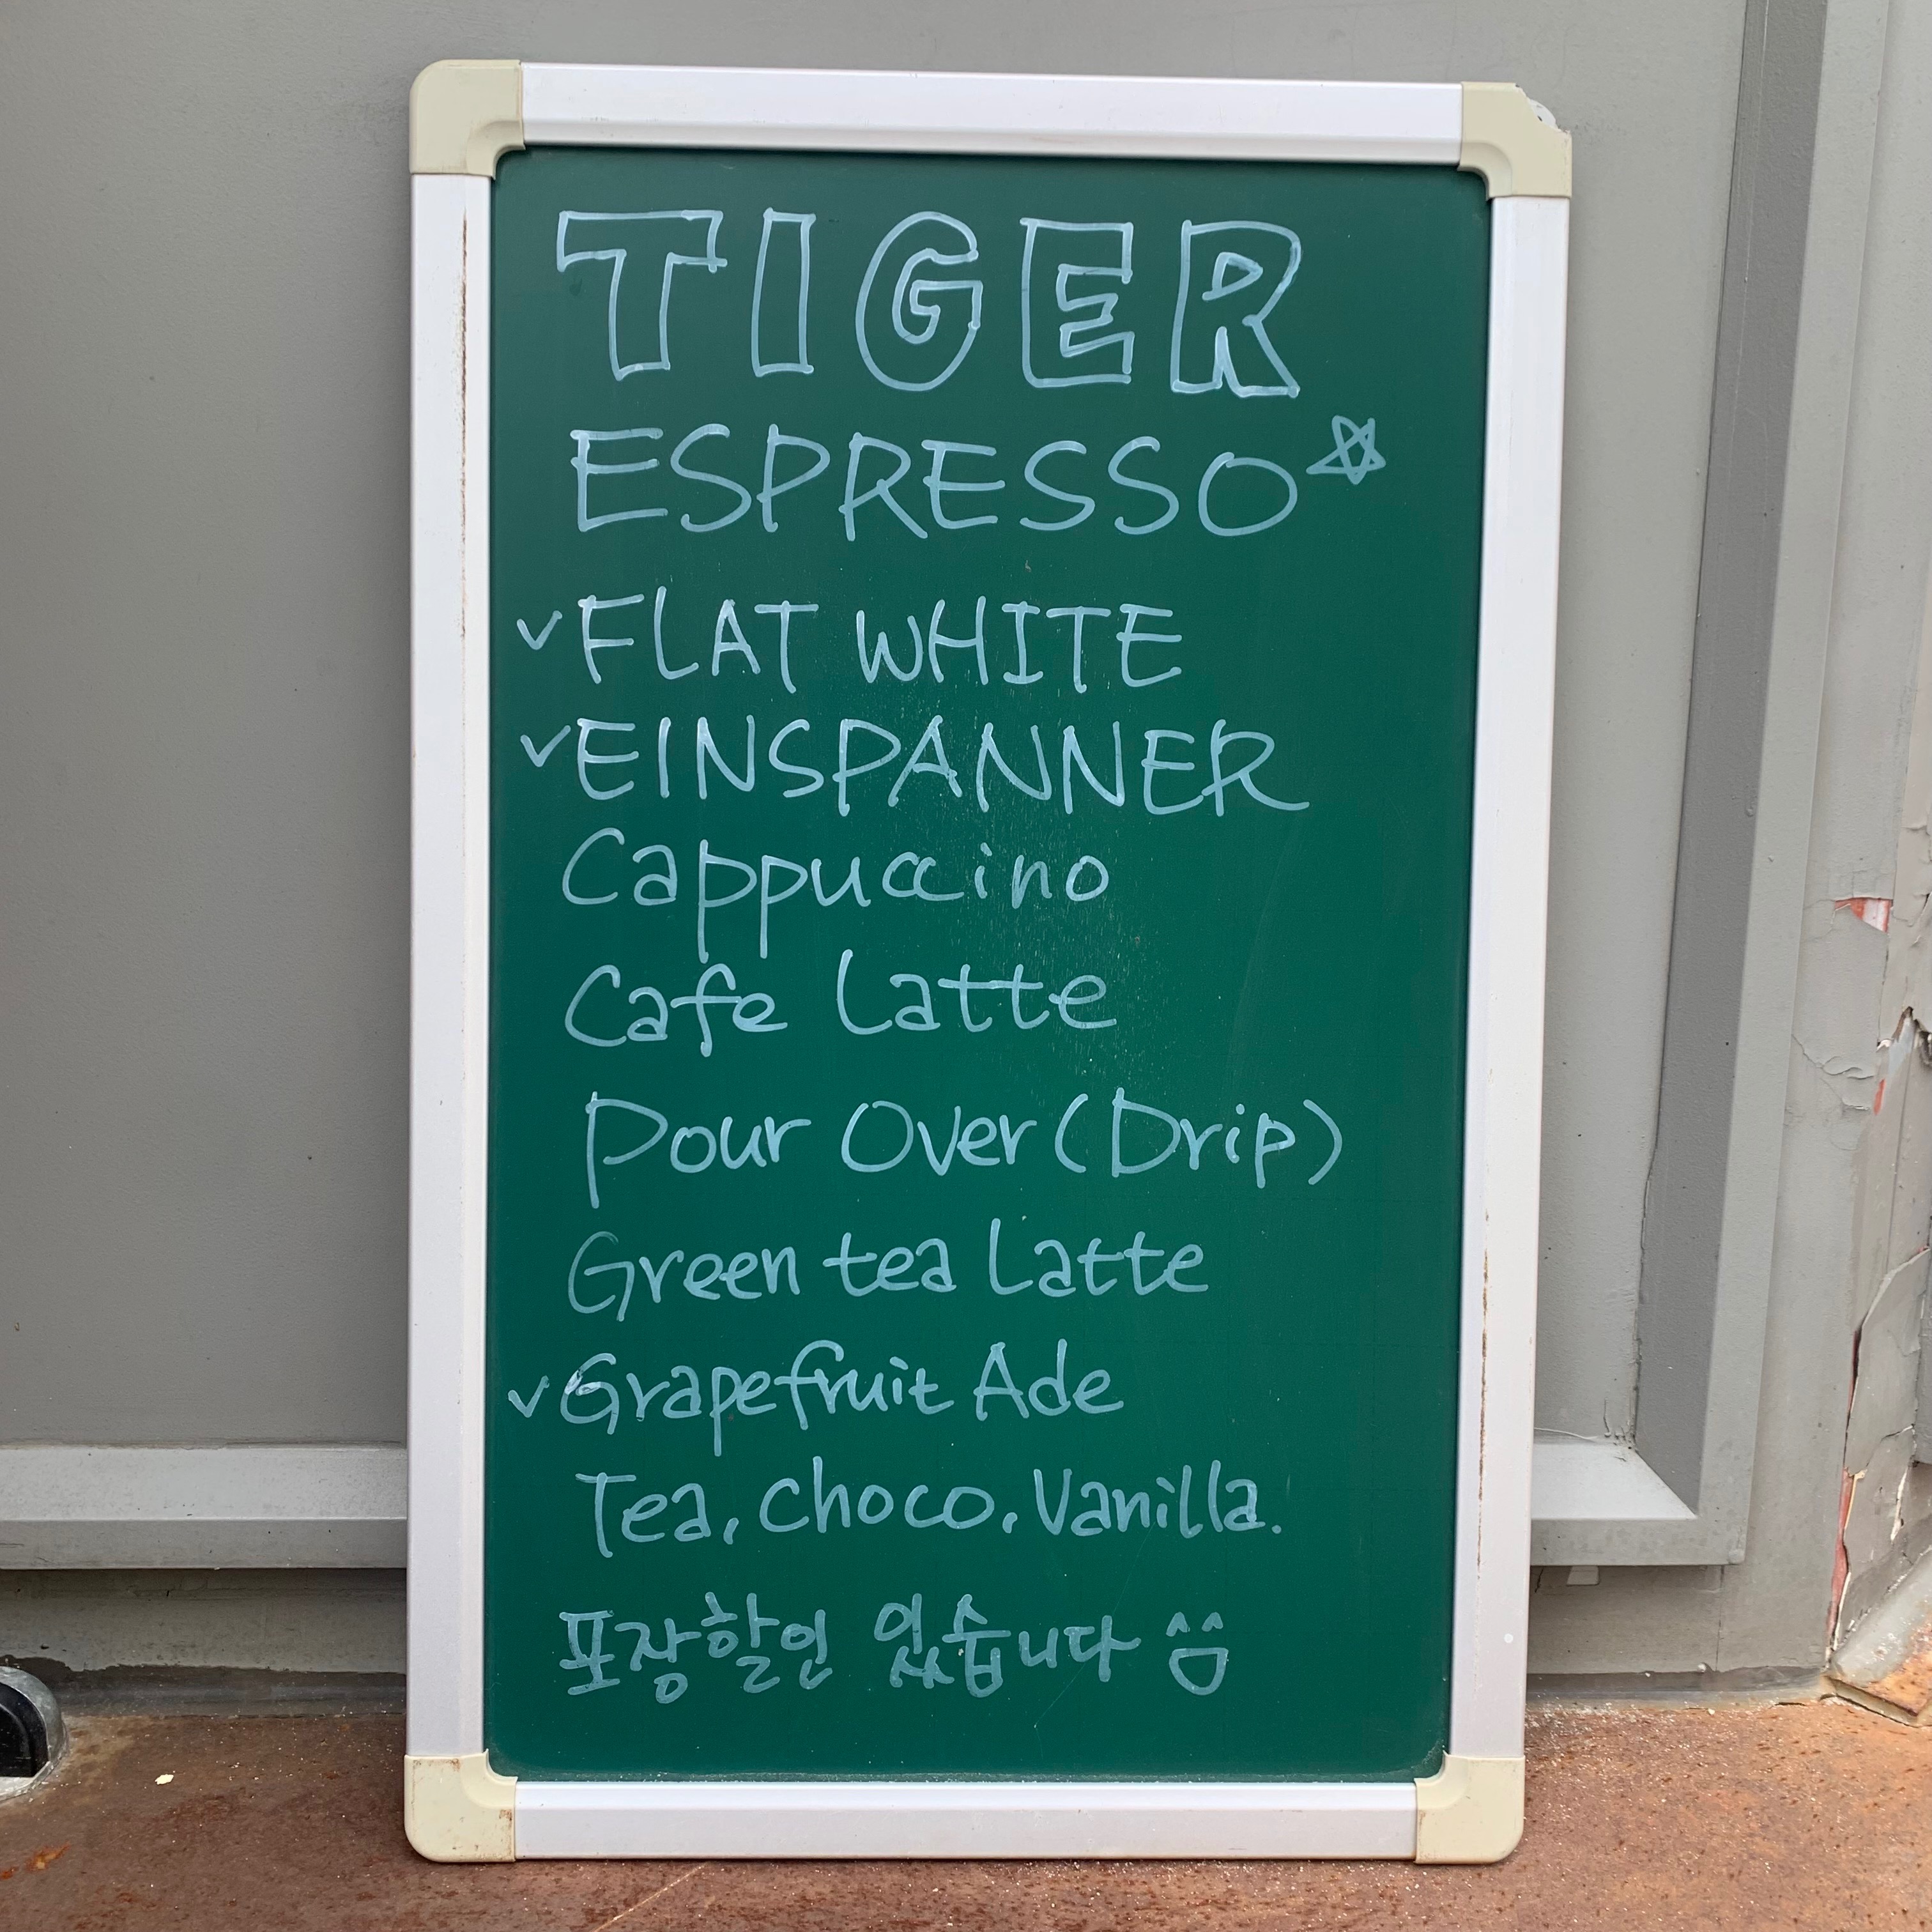 TIGER
ESPRESSO☆
✓FLAT WHITE
✓EINSPANNER
Cappuccino
Cafe Latte
Pour Over (Drip)
Green tea Latte
✓Grapefruit Ade
Tea, Choco, Vanilla.
포장할인 있습니다 ^^